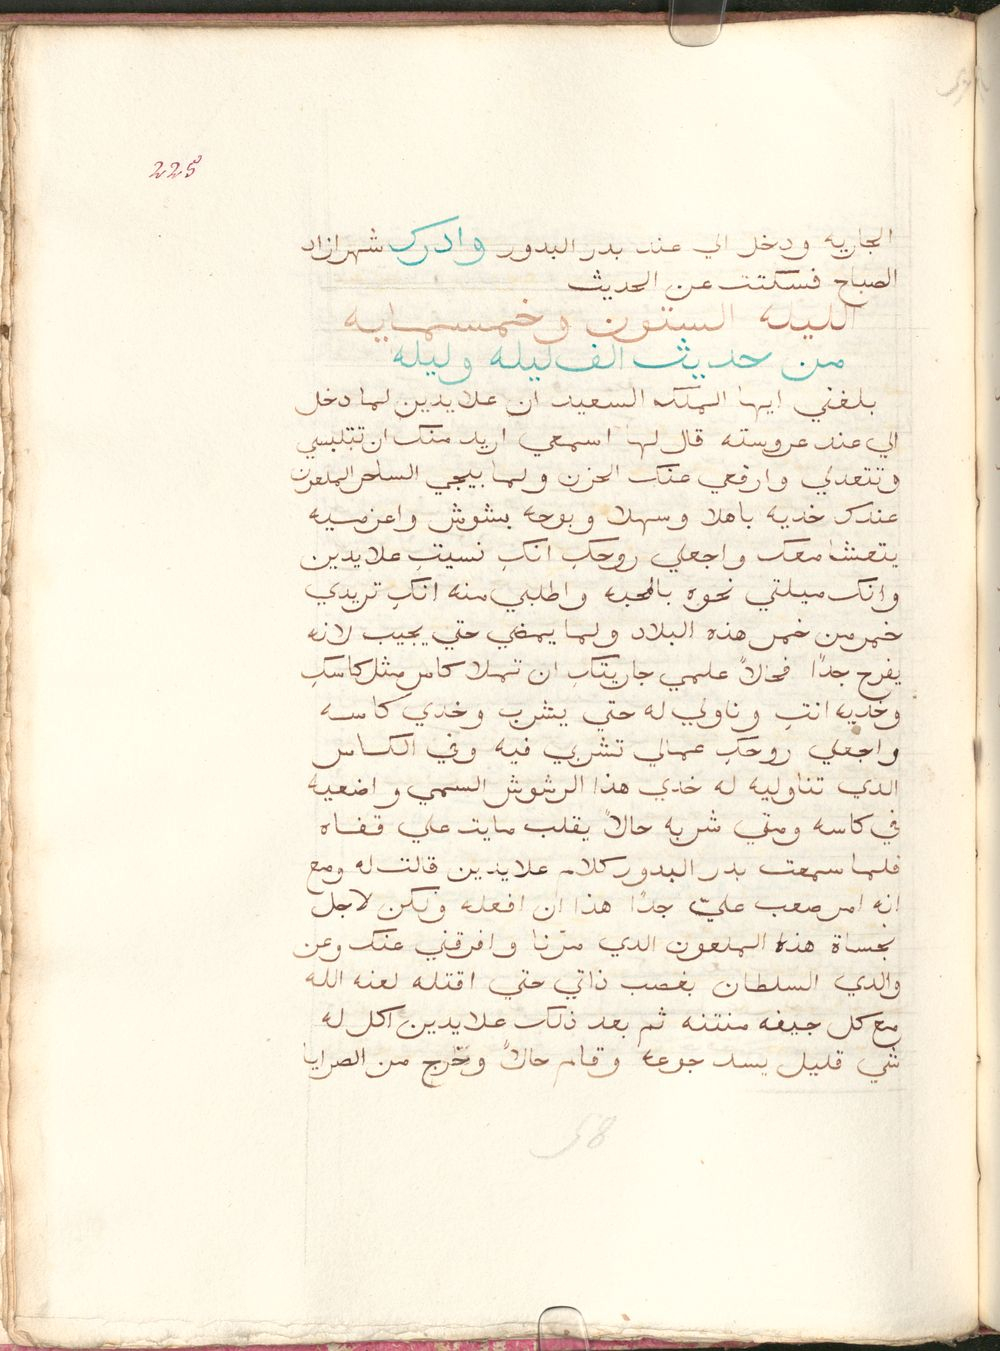 225
الجاريه ودخل الي عند بدر البدور وادرك شهرازاد
الصباح فسكتت عن الحديث
الليله الستون وخمسمايه
من حديث الف ليله وليله
بلغني ايها الملك السعيد ان علايدين لما دخل
الي عند عروسته قال لها اسمعي اريد منك ان تتلبسي
وتتعدلي وارفعي عنك الحزن ولما بيجي الساحر الملعون
عندك خديه باهلا وسهلا وبوجه بشوش واعزميه
يتعشا معك واجعلي روحكِ انكِ نسيتِ علايدين
وانك ميلتي نحوه بالمحبه واطلبي منه انكِ تريدي
خمر من خمر هذه البلاد ولما يمضي حتي يجيب لانه
يفرح جدًا فحالاً علمي جاريتكِ ان تملا كاس مثل كاسكِ
وخديه انتِ وناولي له حتي يشرب وخدي كاسه
واجعلي روحكِ عمالي تشربي فيه وفي الكاس
الدي تناوليه له خدي هذا الرشوش السمي واضعيه
في كاسه ومتي شربه حالاً يقلب مايت علي قفاه
فلما سمعت بدر البدور كلام علايدين قالت له ومع
انه امر صعب عليّ جدًا هذا ان افعله ولكن لاجل
نجساة هذا الملعون الدي مرّنا وافرقني عنك وعن
والدي السلطان بغصب ذاتي حتي اقتله لعنه الله
مع كل جيفه منتنه ثم بعد ذلك علايدين اكل له
شي قليل يسد جوعه وقام حالاً وخرج من الصرايا
58